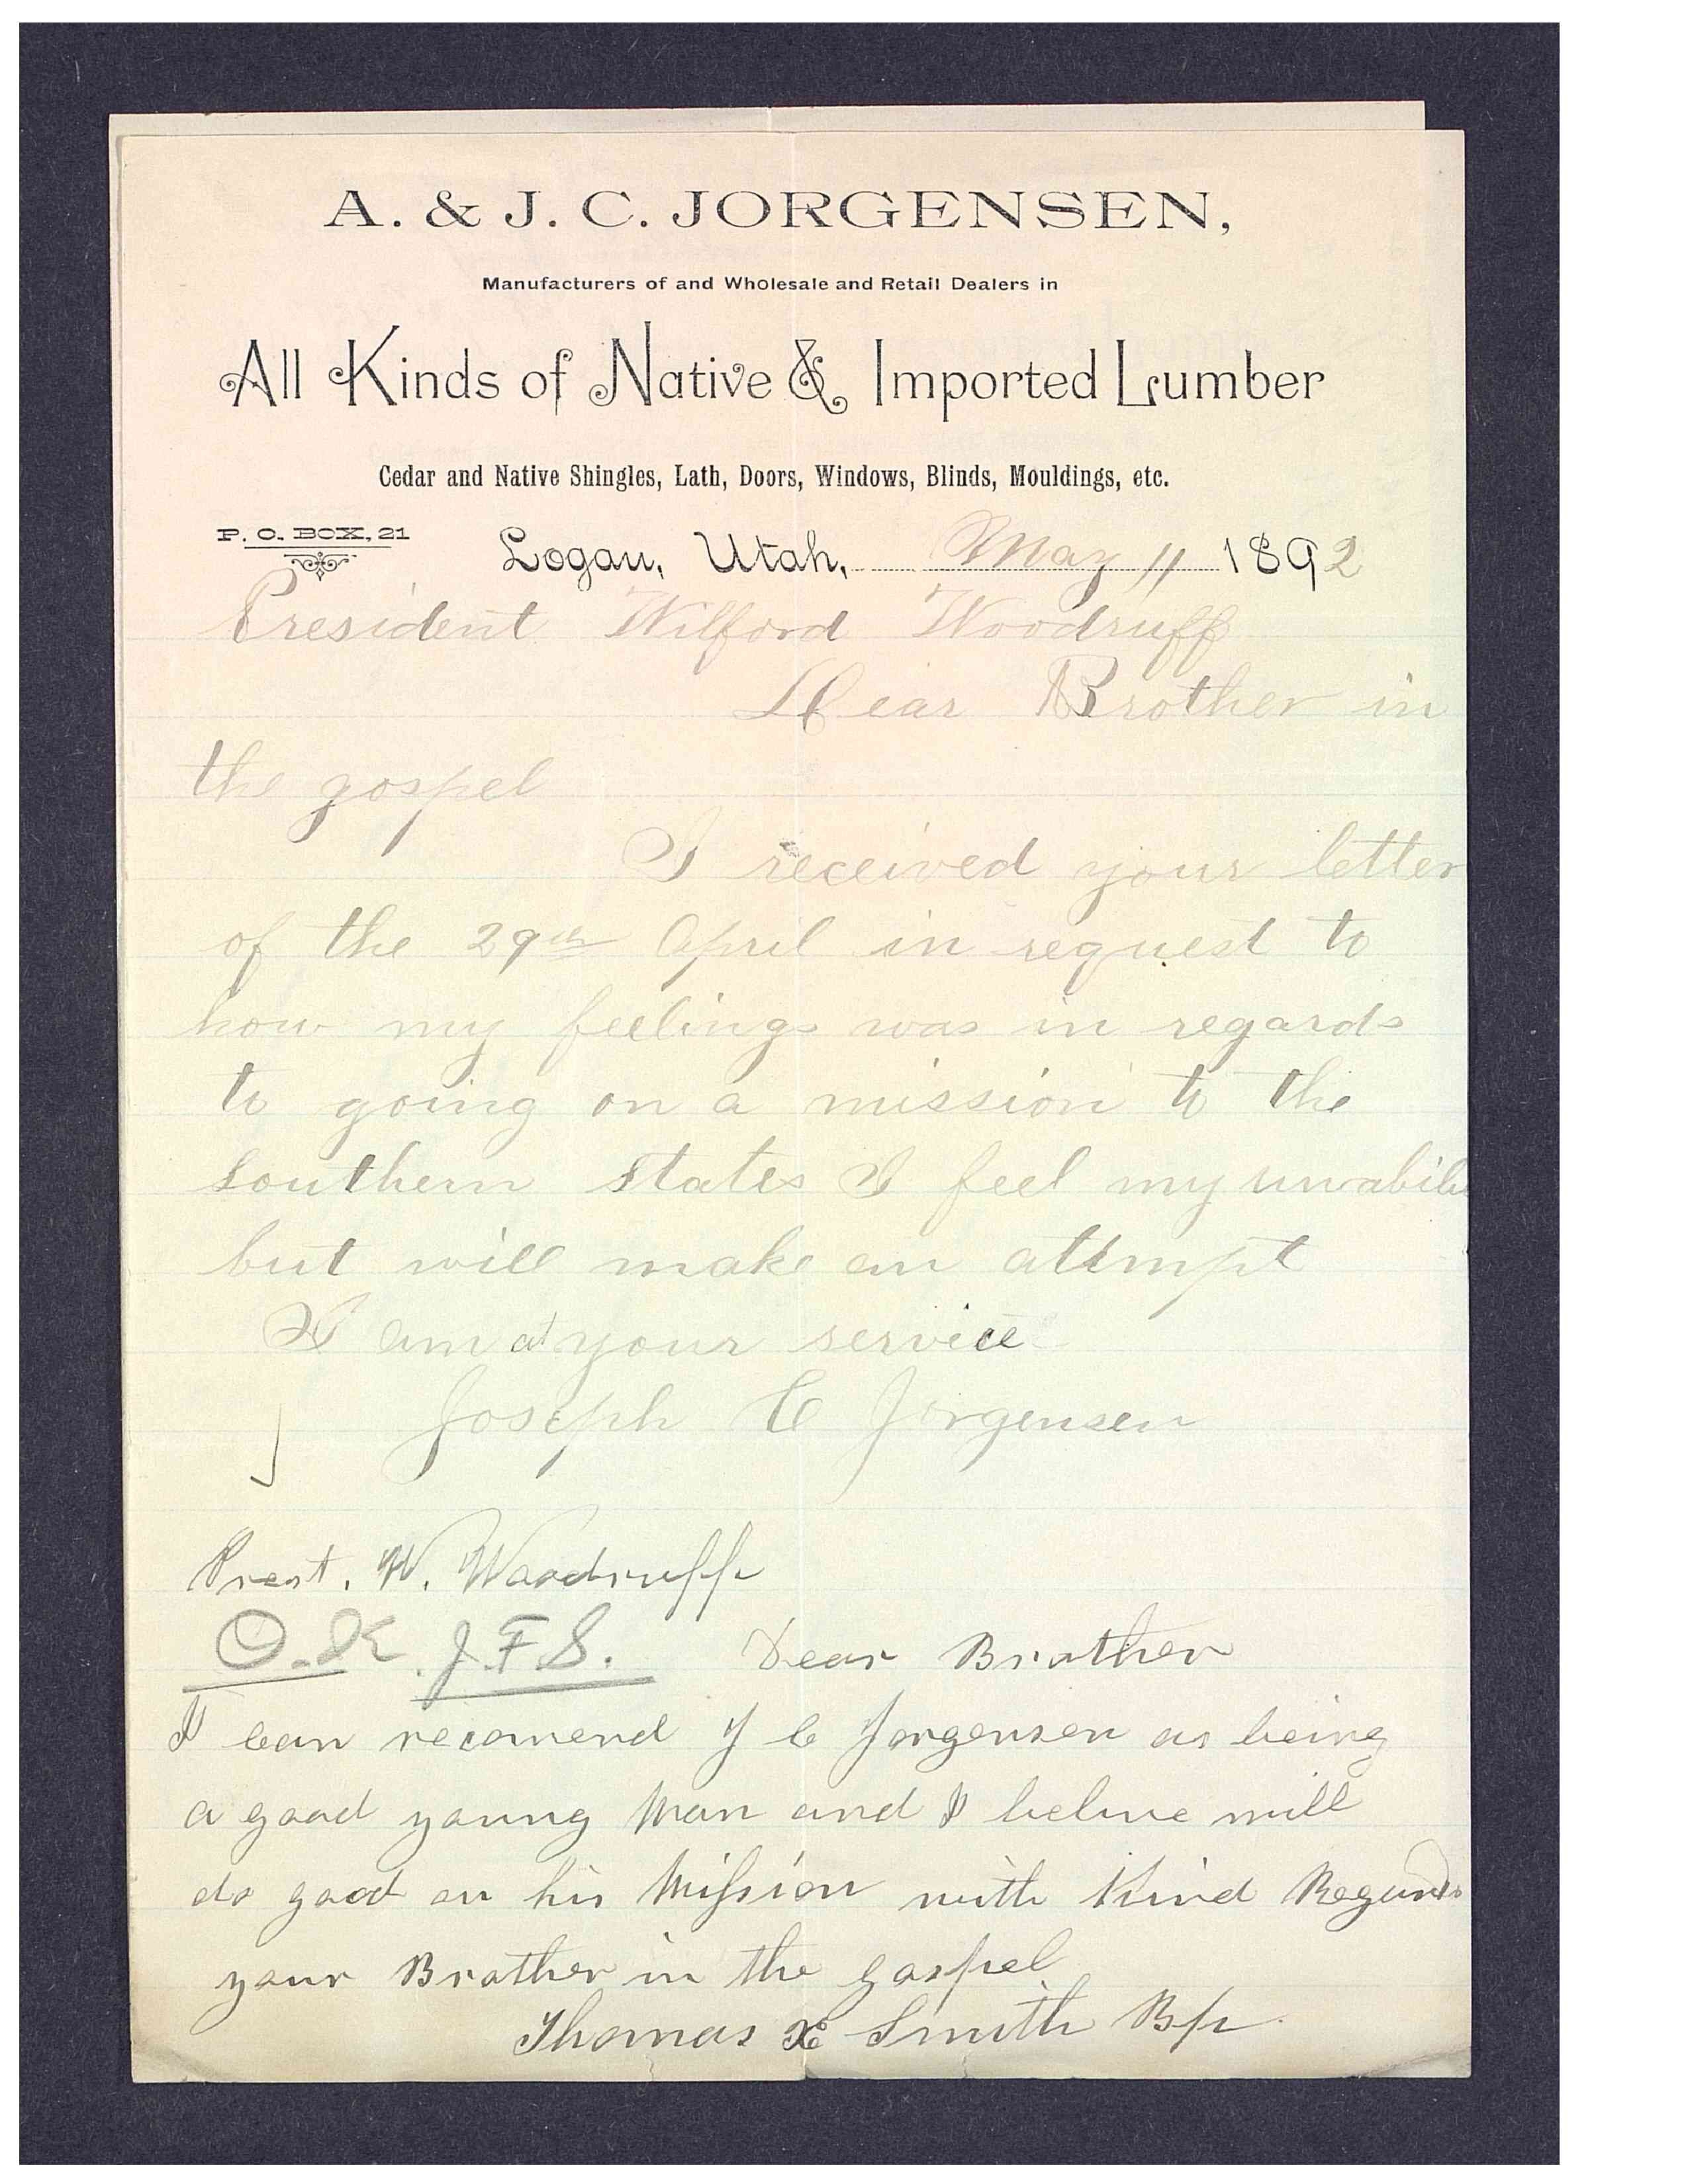 A. & J. C. JORGENSEN,
Manufacturers of and Wholesale and Retail Dealers in
All Kinds of Native & Imported Lumber
Cedar and Native Shingles, Lath, Doors, Windows, Blinds, Mouldings, etc.
P. O. BOX, 21
Logan, Utah, May 11 1892
President Wilford Woodruff
Dear Brother in
the gospel
I received your letter
of the 29th April in request to
how my feelings was in regards
to going on a mission to the
southern states I feel my unabili
but will make an attempt
I am at your service
Joseph C Jorgensen
Prest. W. Woodruff
O.K. J.F.S. Dear Brother
I can recomend J C Jorgensen as being
a good young man and I belive will
do good on his Mission with Kind Regards
your Brother in the gospel
Thomas X Smith Bp